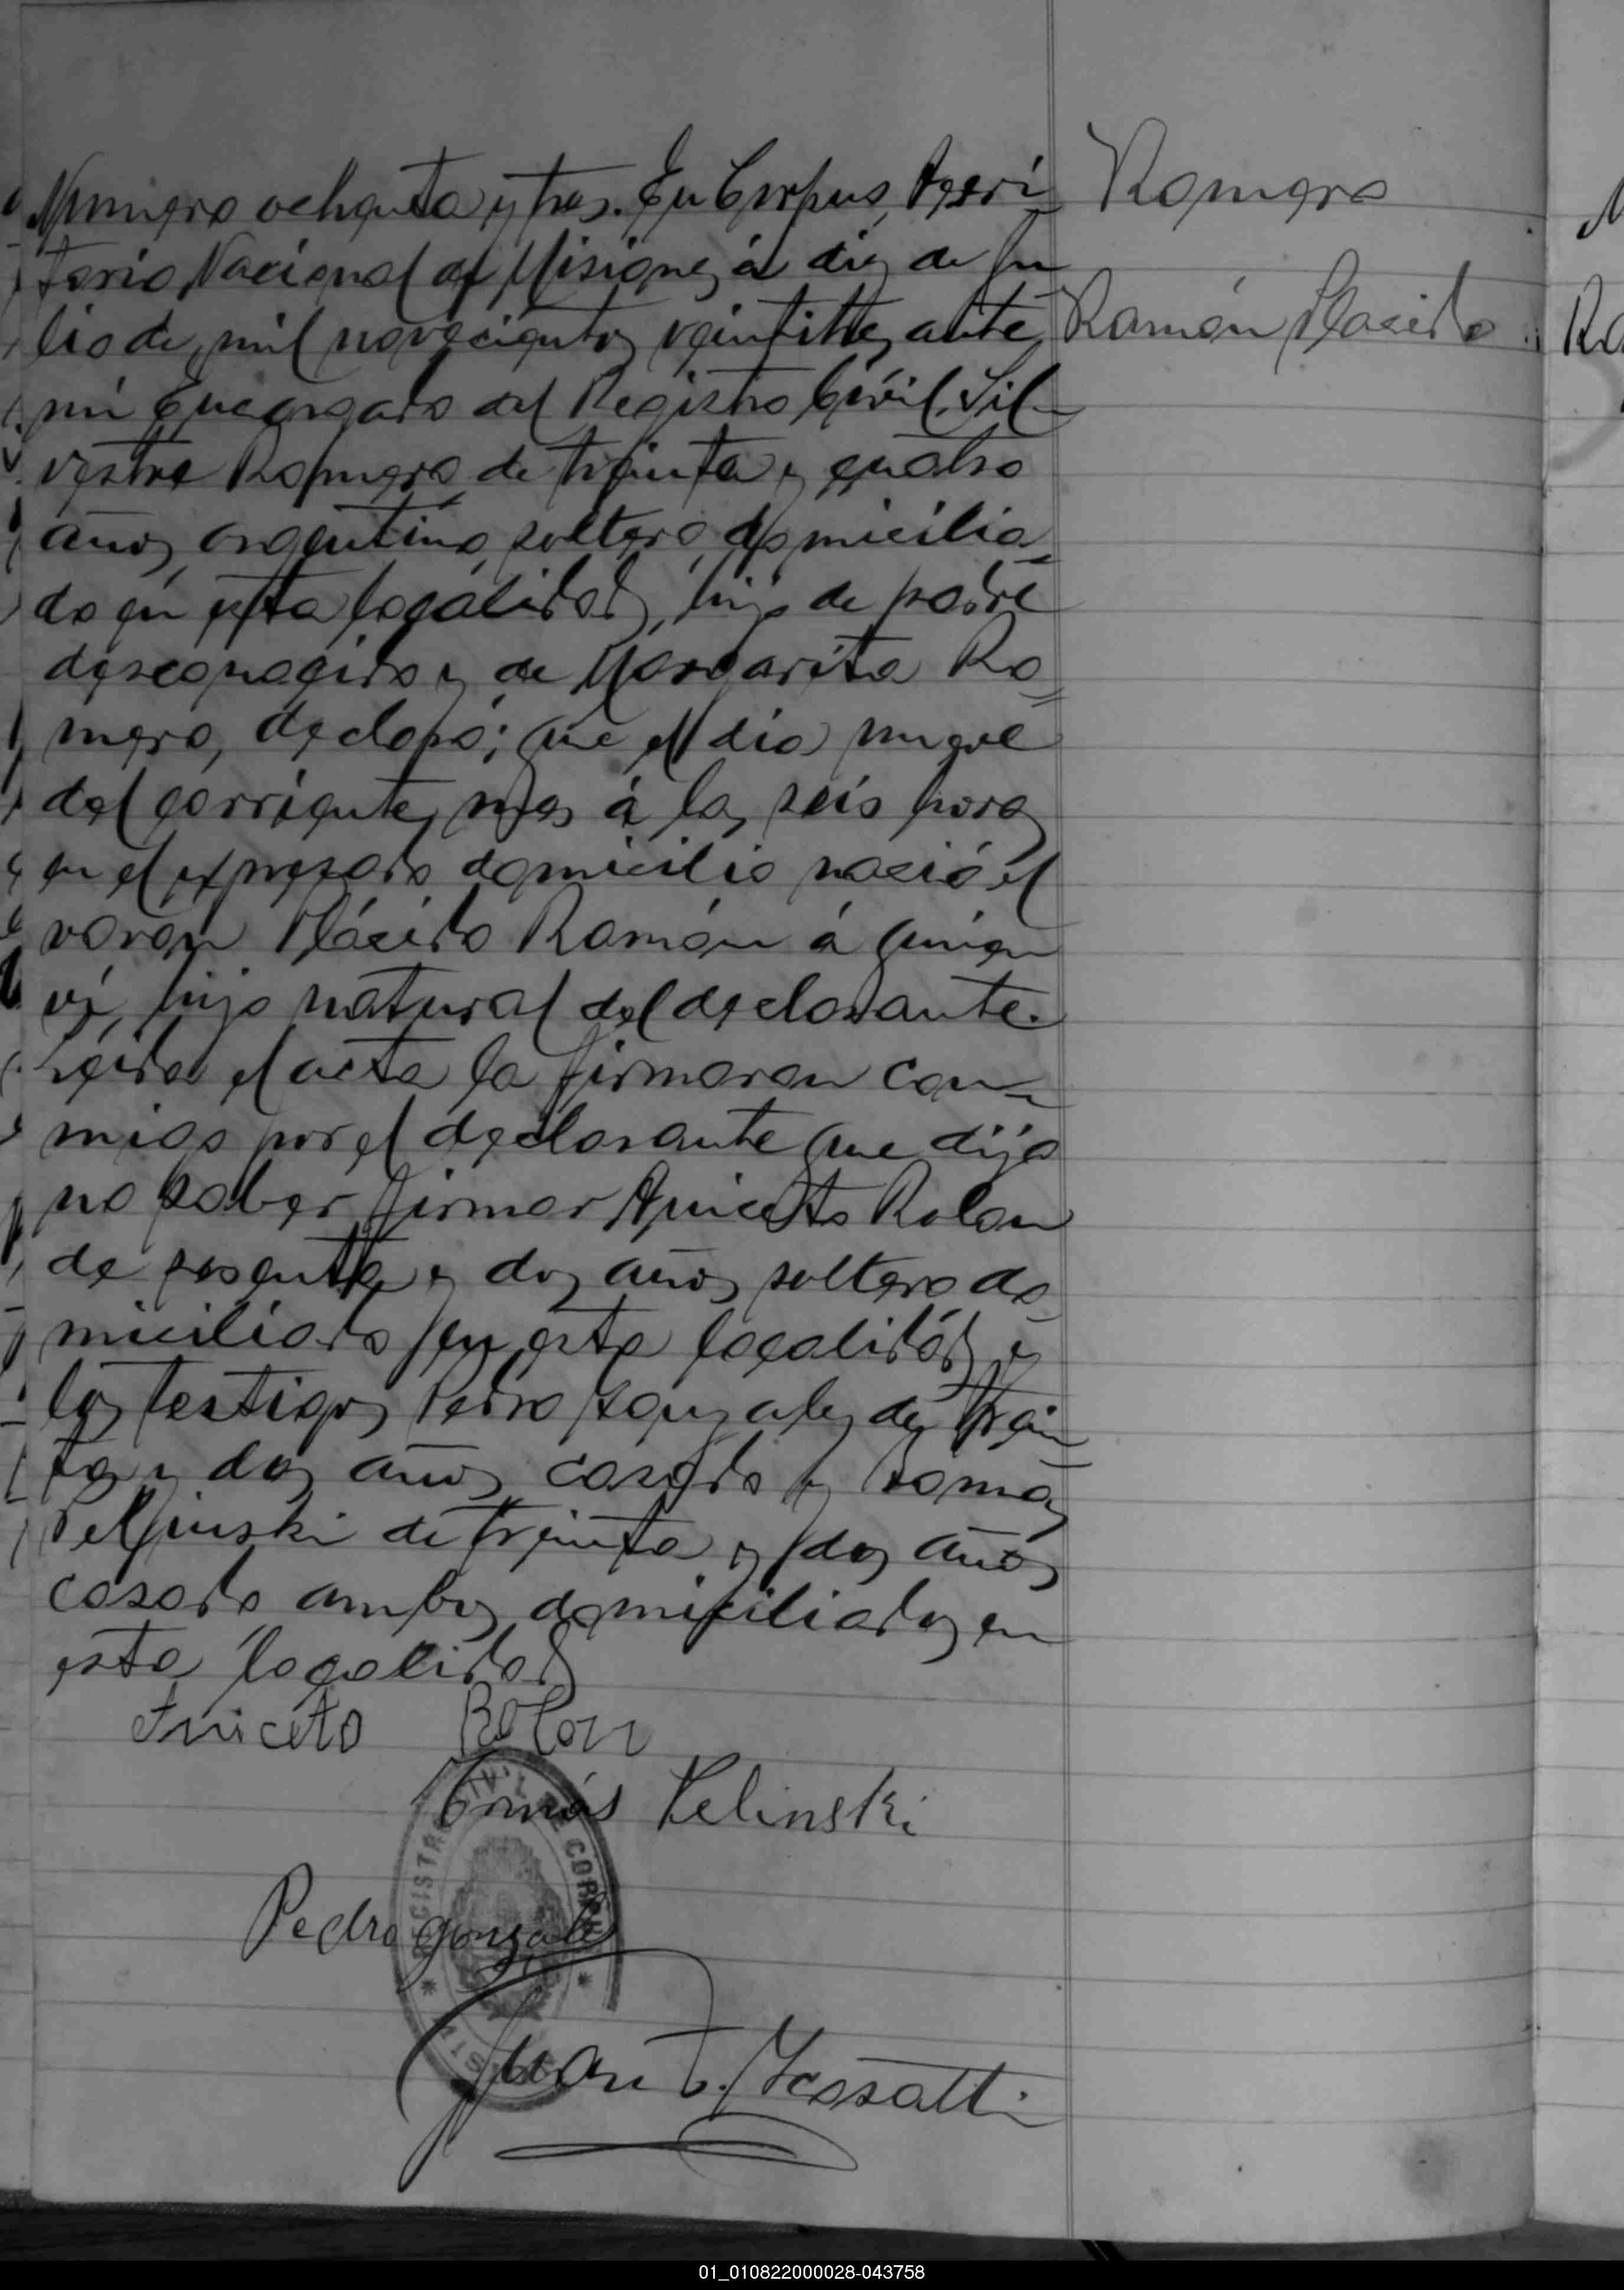 Numero ochenta y tres. En Corpus, Terri
torio Nacional de Misiones, á diez de Ju
lio de mil novecientos veintitres, ante
mi Encargado del Registro Civil, Sil
vestre Romero de treinta y cuatro
años, argentino, soltero, domicilia
do en esta localidad, hijo de padre
desconocido y de Margarita Ro
mero, declaró; que el dia nueve
del corriente mes á las seis horas
en el expresado domicilio nació el
varon Plácido Ramón á quien
vi, hijo natural del declarante.
Leida el acta la firmaron con
migo por el declarante que dijo
no saber firmar Aniceto Rolon
de sesenta y dos años soltero do
miciliado en esta localidad y
los testigos Pedro Gonzalez de trein
ta y dos años casado y Tomás
Pelinski de treinta y dos años
casado ambos domiciliados en
esta localidad
Aniceto Rolon
Tomás Pelinski
Pedro Gonzalez
Juan
Romero
Ramón Placido
REGISTRO CIVIL DE CORPUS
* MISIONES *
01_010822000028-043758